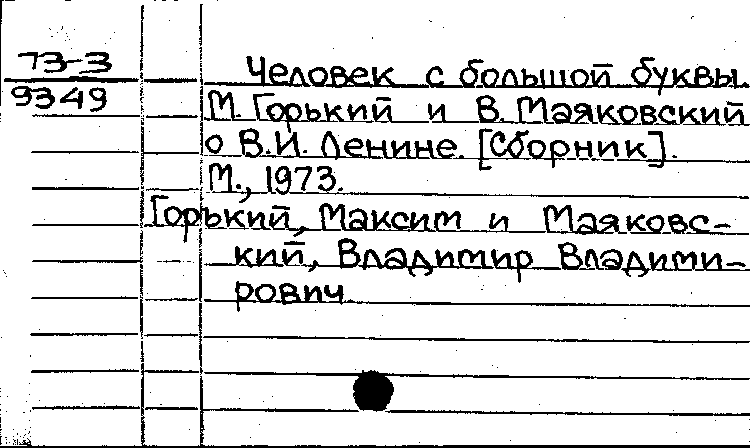 73-3
9349
Человек с большой буквы.
М. Горький и В. Маяковский
о В.И. Ленине. [Сборник].
М., 1973.
Горький, Максим и Маяковс-
кий, Владимир Владими-
рович.